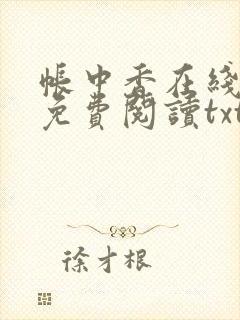 帳中香在綫
免費閱讀txt
徐才根